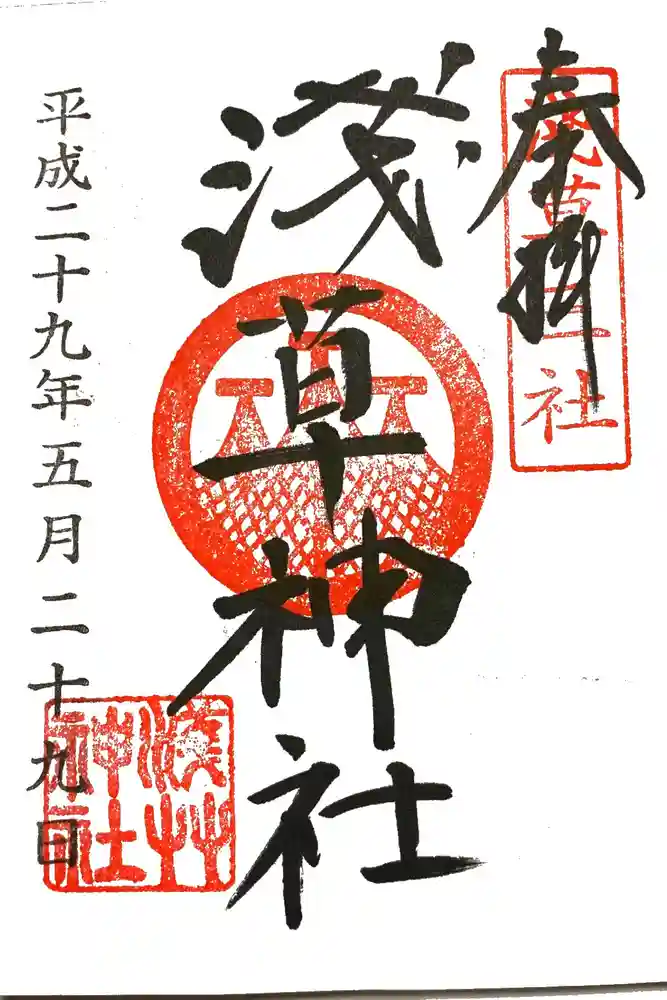 奉拝
淺草三社
淺草神社
平成二十九年五月二十九日
淺艸
神社